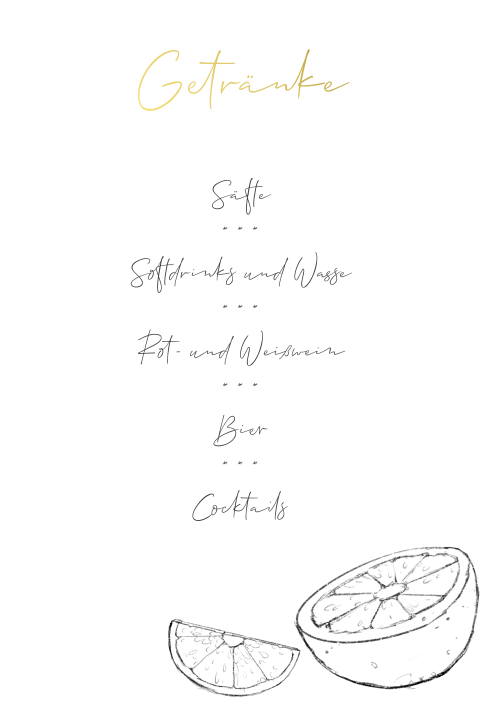 Getränke
Säfte
* * *
Softdrinks und Wasse
* * *
Rot- und Weißwein
* * *
Bier
* * *
Cocktails